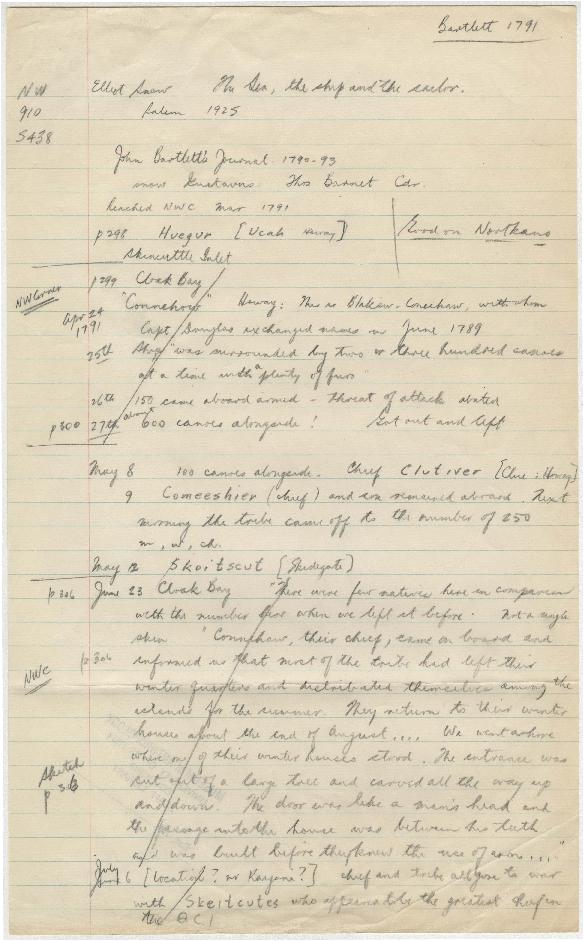 Bartlett 1791
NW Elliot Snow The Sea, the ship and the sailor.
910 Salem 1925
S438
John Bartlett's Journal 1790-93
snow Gustavus Thos Barnet Cdr.
reached NWC Mar 1791
p298 Huegur [Ucah Howay] Good on Norkano
Skincuttle Inlet
p299 Cloak Bay
NW Corner
"Connehow" Howay: This is Blakow-Coneehaw, with whom
Apr 24
1791 Capt Douglas exchanged names in June 1789
25th Ship "was surrounded by two or three hundred canoes
at a time with "plenty of furs"
26th 150 came aboard armed - threat of attack abated
p300 27th about 600 canoes alongside! Got out and left
May 8 100 canoes alongside. Chief Clutiver [Clue: Howay]
9 Comeeshier (chief) and son remained aboard. Next
morning the tribe came off to the number of 250
m, w, ch.
May 12 Skoitscut [Skidegate]
p306 June 23 Cloak Bay "There were few natives here in comparison
with the number when we left it before. Not a single
skin "Connehaw, their chief, came on board and
NWC p306 informed us that most of the tribe had left their
winter quarters and distributed themselves among the
islands for the summer. They return to their winter
houses about the end of August.... We went ashore
where one of their winter houses stood. The entrance was
Sketch
p 306
cut out of a large tree and carved all the way up
and down. The door was like a man's head and
the passage into the house was between his teeth
and was built before they knew the use of iron...."
July 6 [Location? nr Kaigani?] chief and tribe all gone to war
with Skeitcutes who appears to be the greatest chief in
the QCI